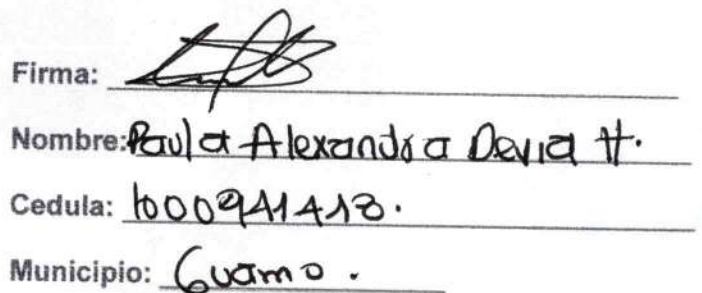 Firma:
Nombre: Paula Alexandra Devia H.
Cedula: 1000941413.
Municipio: Guamo.